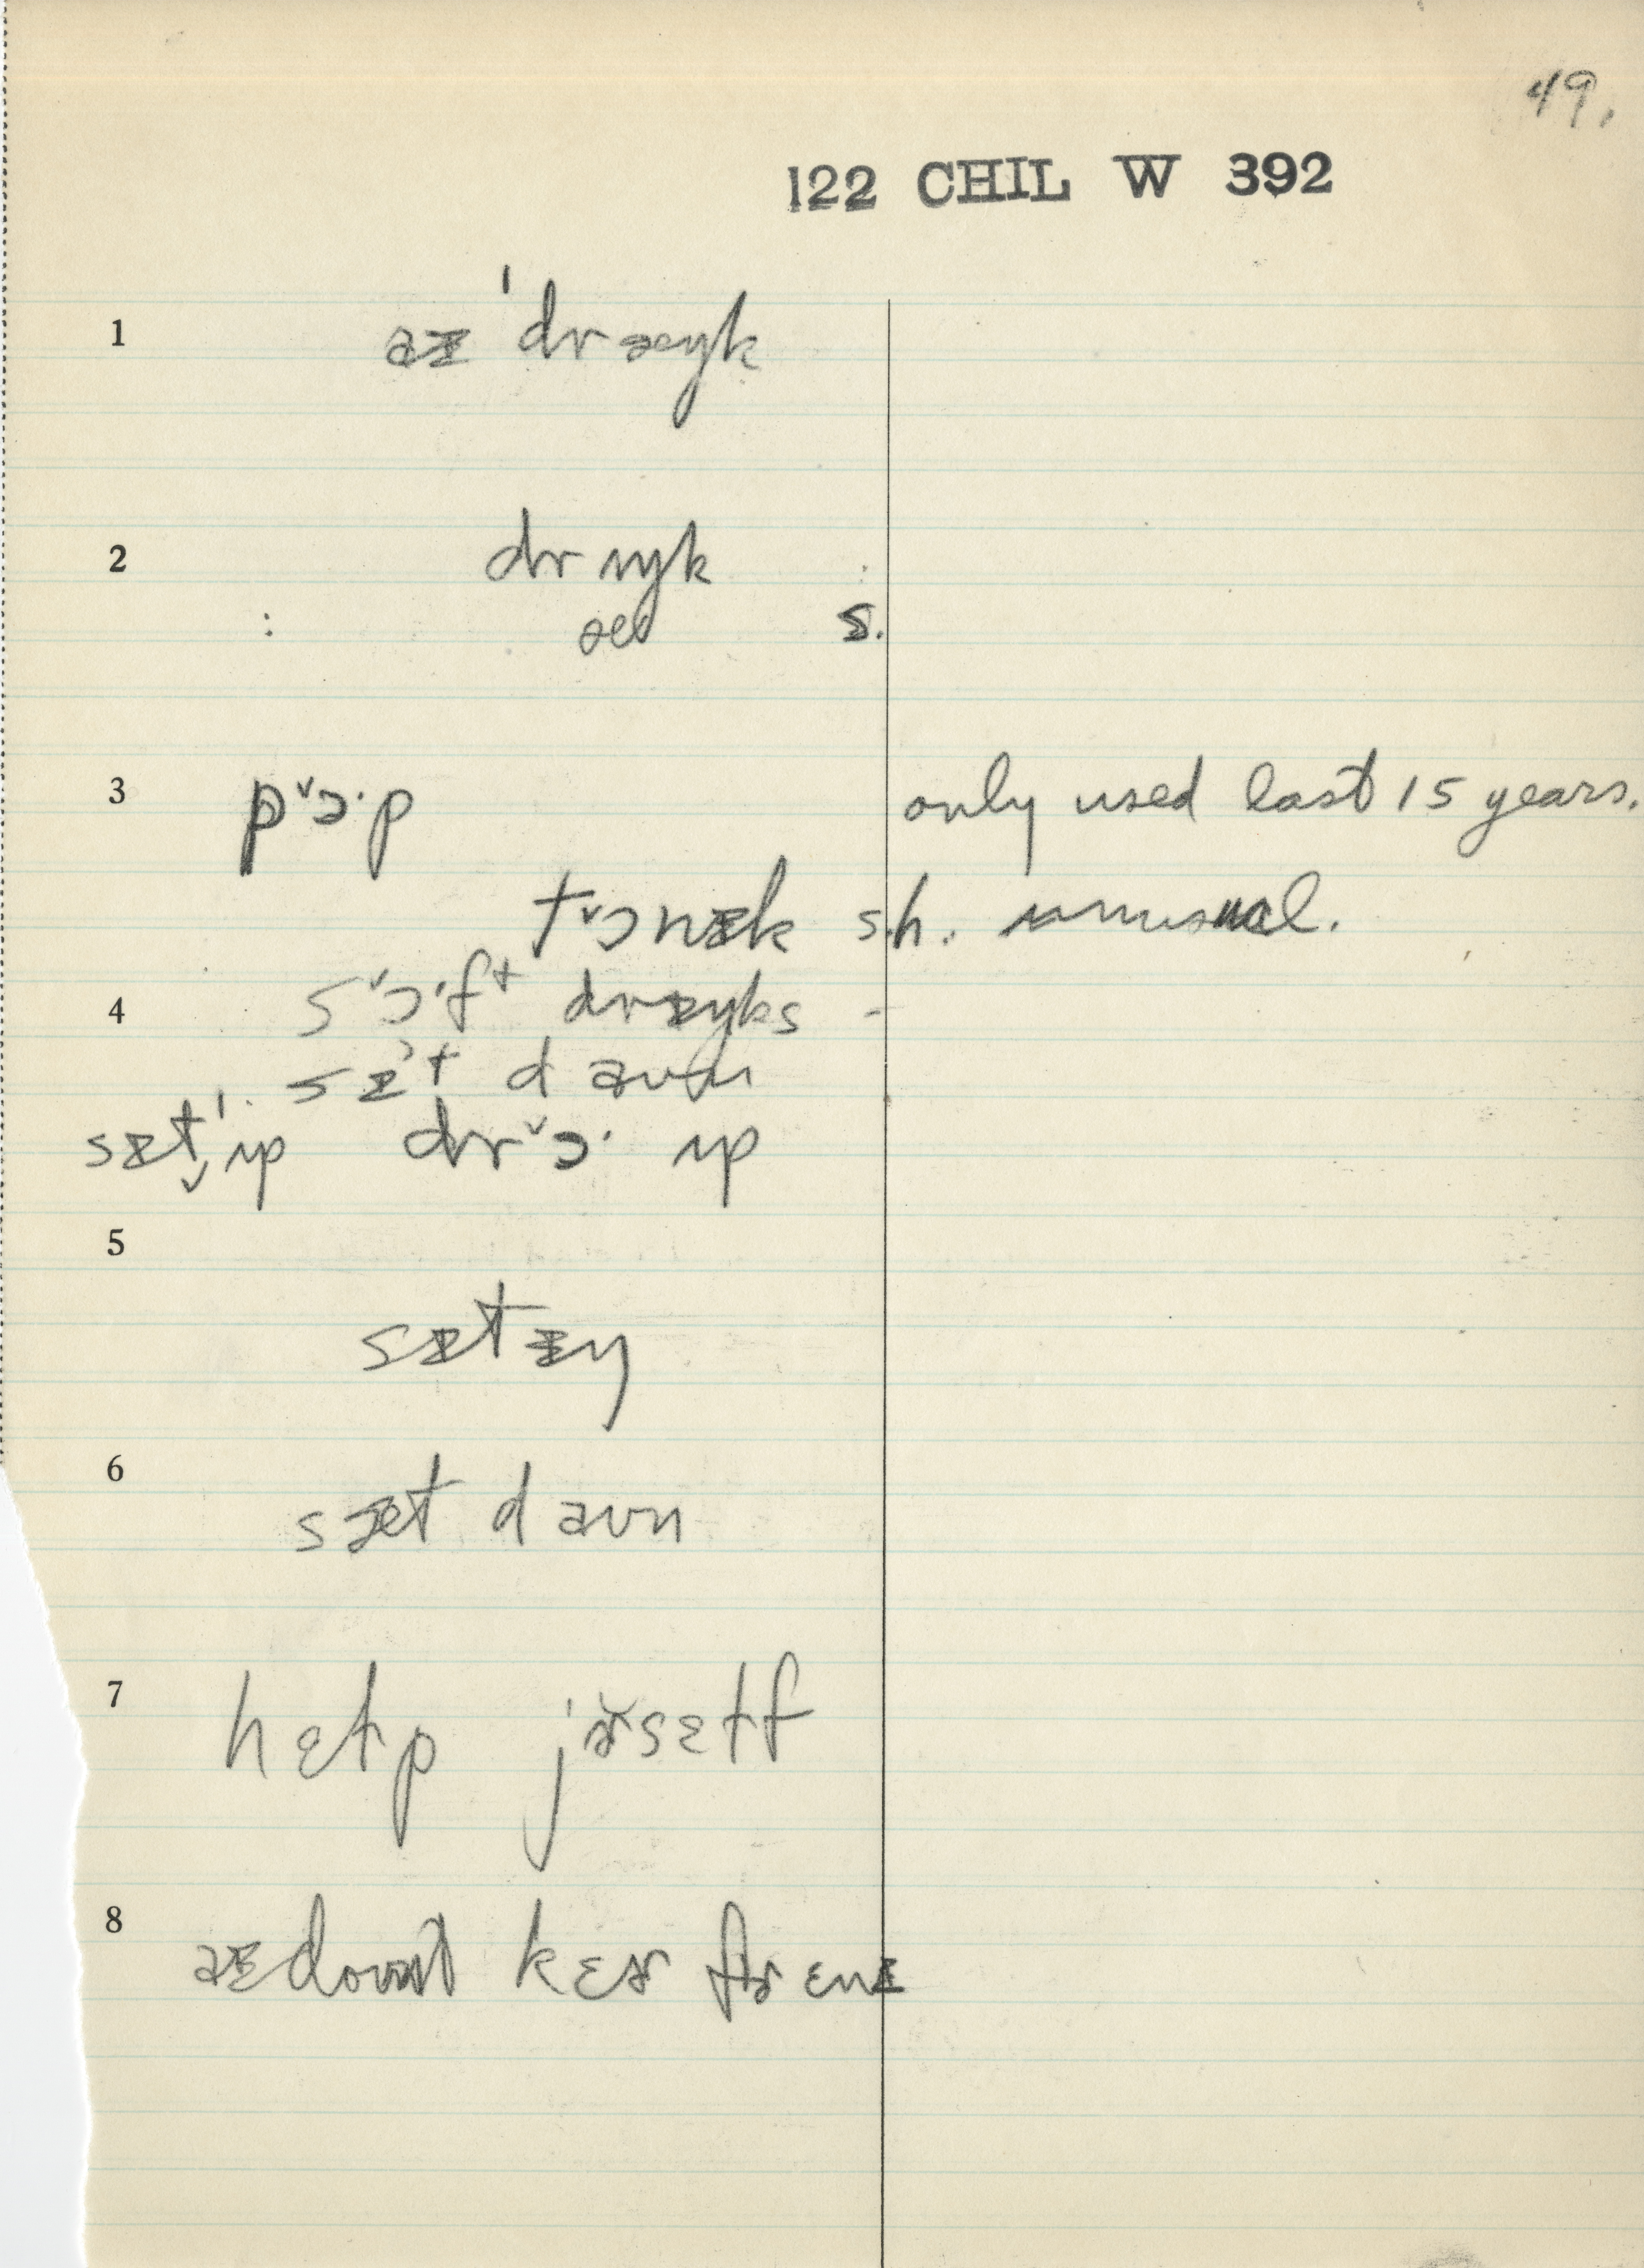 49.
122 CHIL W 392
1 aᵻ 'dræŋk
2 drʌŋk
æ s.
3 p˅ɔ·p only used last 15 years.
t˅ɔnᵻk s.h. unusual.
4 s˅ɔ·ft drᵻŋks -
sᵻt daʊn
sᵻt̬'ʌp dr˅ɔ· ʌp
5
sᵻtᵻŋ
6 sæt daʊn
7 hɛɫp jɚsɛɫf
8 aᵻdount kɛɚ fɚ ɛnᵻ